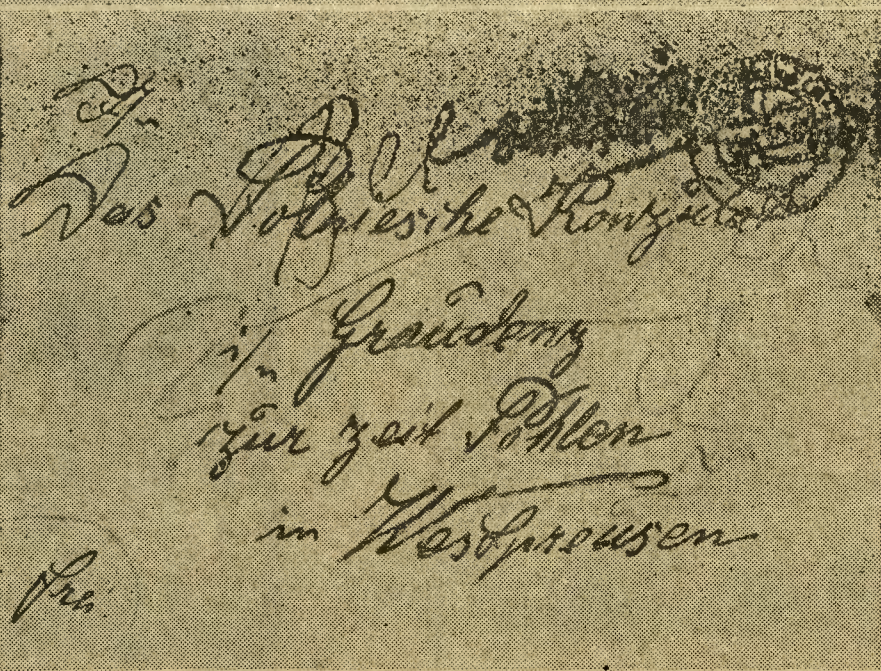 An
Das Polniesche Konzulat
i/n Graudenz
zur zeit Pohlen
in Westpreusen
frei